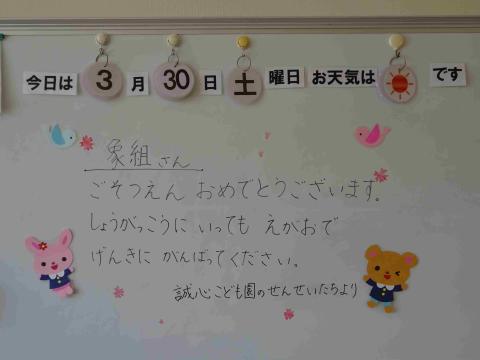 今日は 3月 30日 土曜日 お天気は です
象組さん
ごそつえん おめでとうございます。
しょうがっこうに いっても えがおで
げんきに がんばってください。
誠心こども園のせんせいたちより